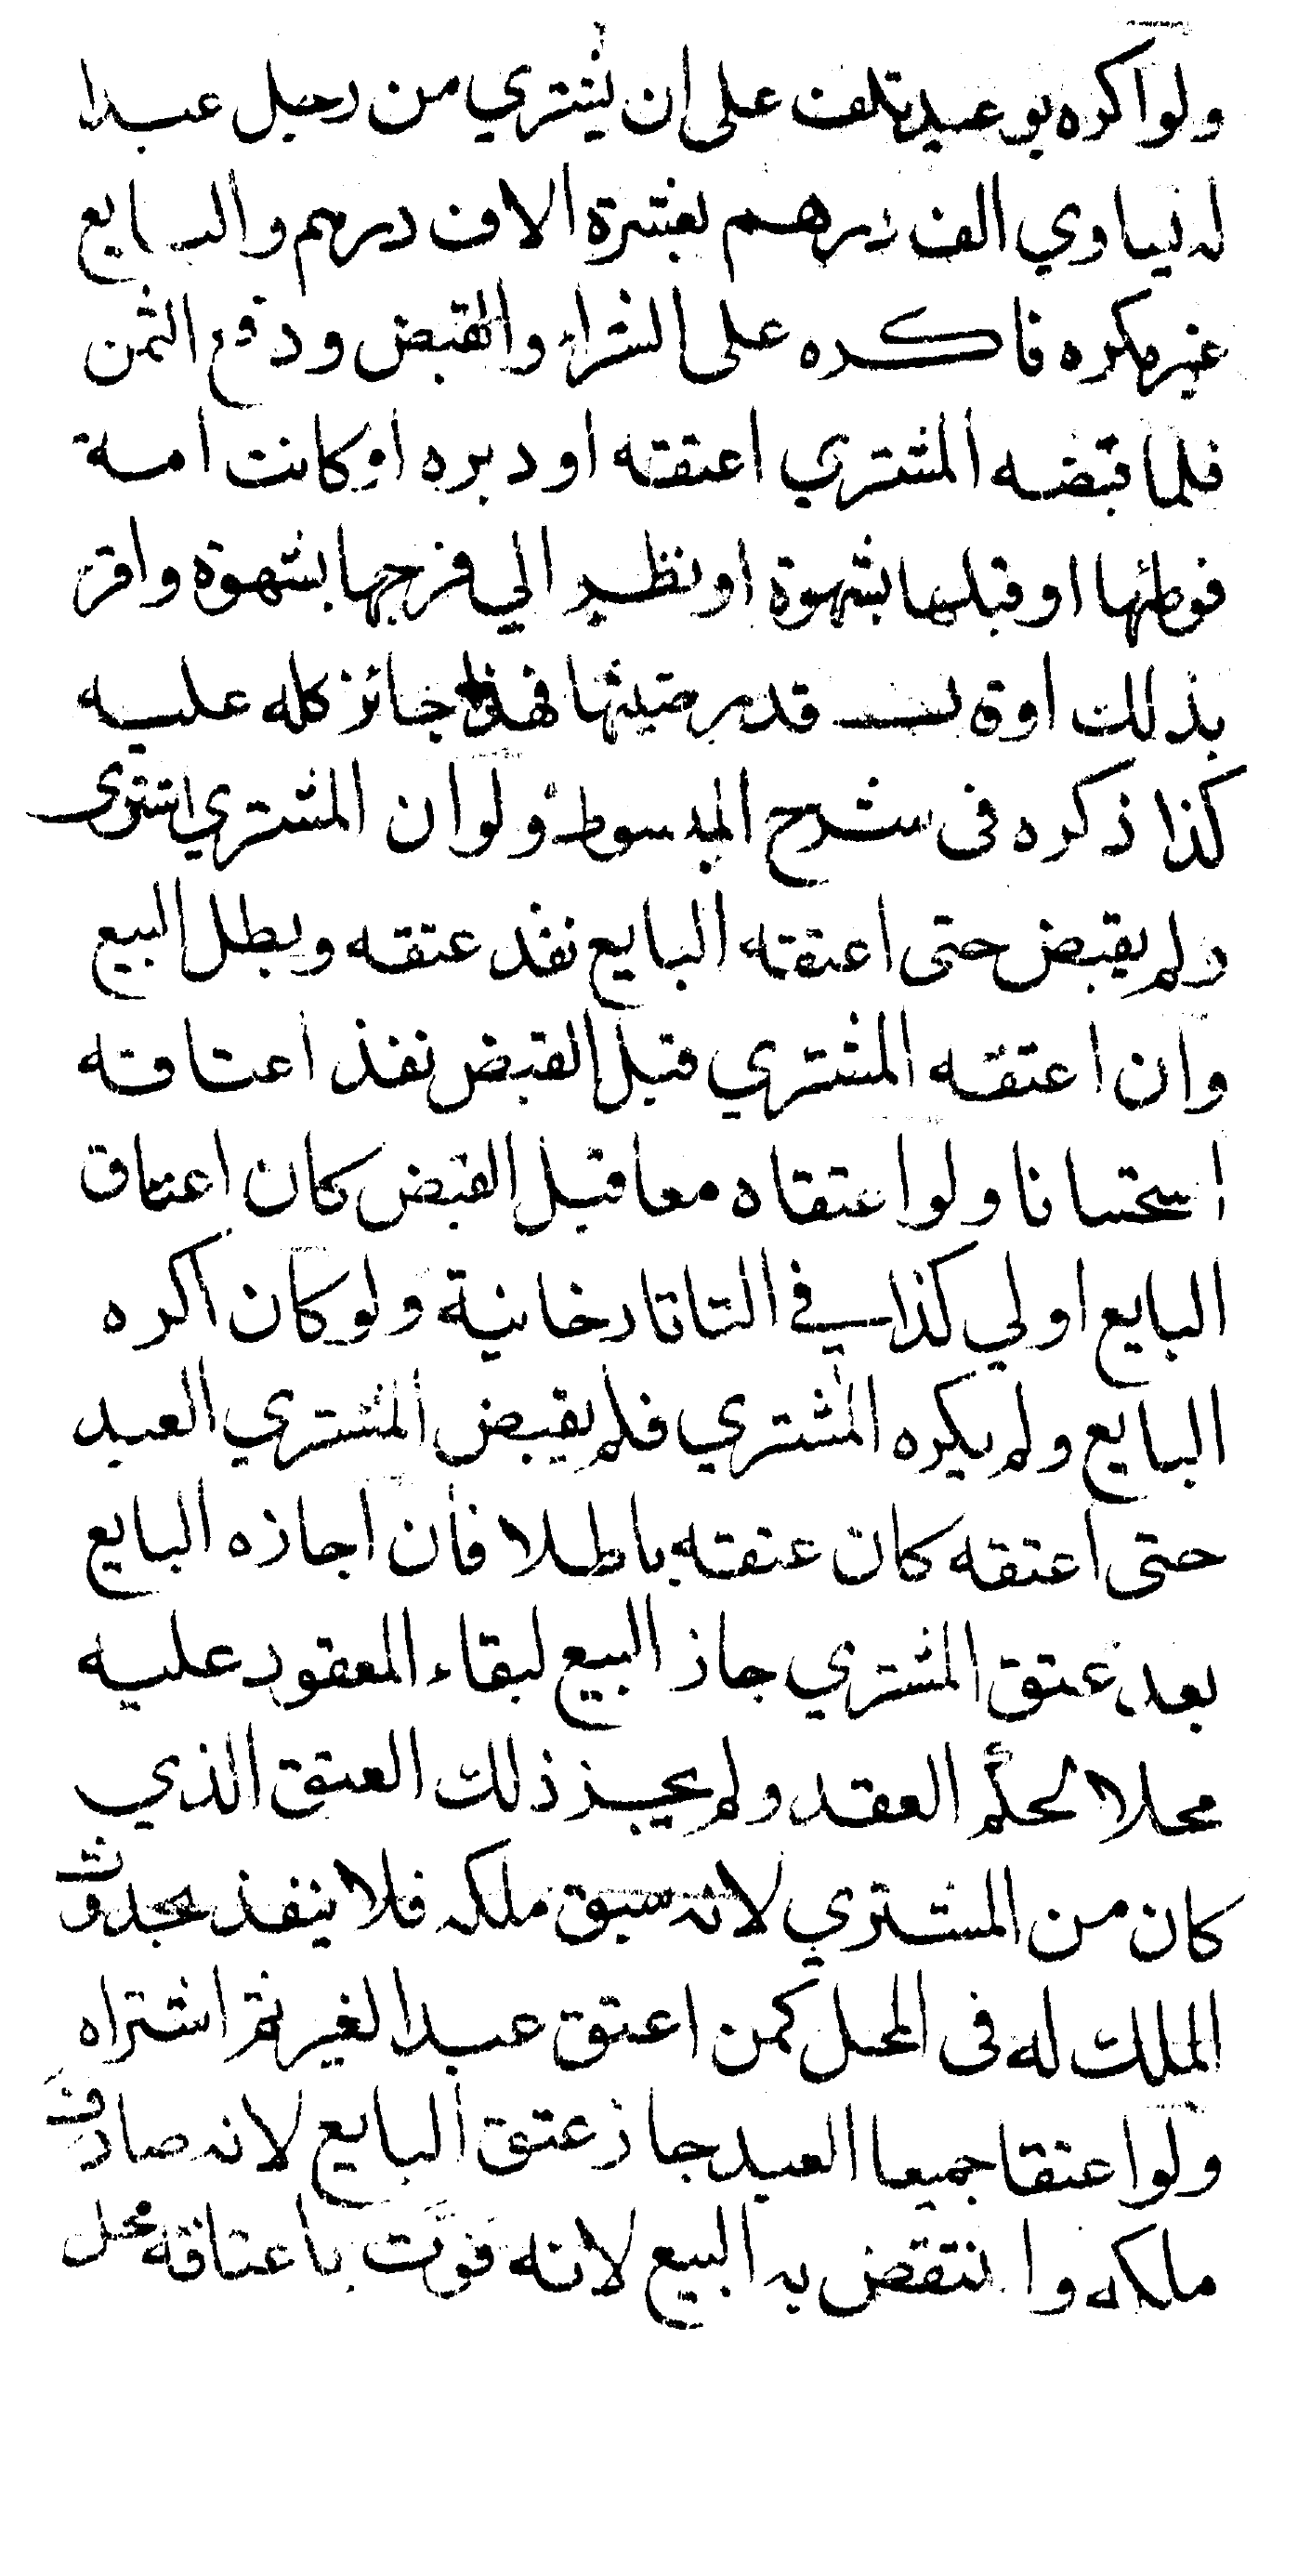 ولو اكره بوعيد تلف على ان يشتري من رجل عبدا
له يساوي الف درهم بعشرة الاف درهم والبايع
غير مكره فاكره على الشراء والقبض ودفع الثمن
فلما قبضه المشتري اعتقه او دبره او كانت امة
فوطئها او قبلها بشهوة او نظر الي فرجها بشهوة واقر
بذلك او قال قد رضيتها فهذا جائز كله عليه
كذا ذكره فى شرح المبسوط ولو ان المشتري اشترى
ولم يقبض حتى اعتقه البايع نفذ عتقه وبطل البيع
وان اعتقه المشتري قبل القبض نفذ اعتاقه
استحسانا ولو اعتقاه معا قبل القبض كان اعتاق
البايع اولي كذا في التاتارخانية ولو كان اكره
البايع ولم يكره المشتري فلم يقبض المشتري العبد
حتى اعتقه كان عتقه باطلا فان اجازه البايع
بعد عتق المشتري جاز البيع لبقاء المعقود عليه
محلا لحكم العقد ولم يجز ذلك العتق الذي
كان من المشتري لانه سبق ملكه فلا ينفذ بحدوث
الملك له فى المحل كمن اعتق عبد الغير ثم اشتراه
ولو اعتقا جميعا العبد جاز عتق البايع لانه صادف
ملكه وانتقض به البيع لانه فوت باعتاقه محل